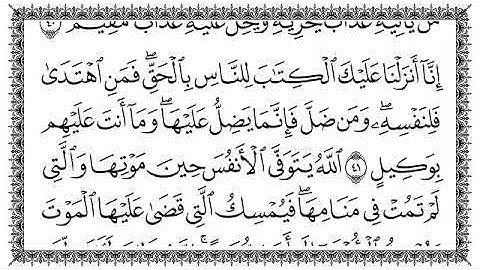 من يأتيه عذاب يخزيه ويحل عليه عذاب مقيم ٤٠
إِنَّآ أَنزَلْنَا عَلَيْكَ ٱلْكِتَٰبَ لِلنَّاسِ بِٱلْحَقِّ ۖ فَمَنِ ٱهْتَدَىٰ
فَلِنَفْسِهِۦ ۖ وَمَن ضَلَّ فَإِنَّمَا يَضِلُّ عَلَيْهَا ۖ وَمَآ أَنتَ عَلَيْهِم
بِوَكِيلٍ ٤١ ٱللَّهُ يَتَوَفَّى ٱلْأَنفُسَ حِينَ مَوْتِهَا وَٱلَّتِى
لَمْ تَمُتْ فِى مَنَامِهَا ۖ فَيُمْسِكُ ٱلَّتِى قَضَىٰ عَلَيْهَا ٱلْمَوْتَ